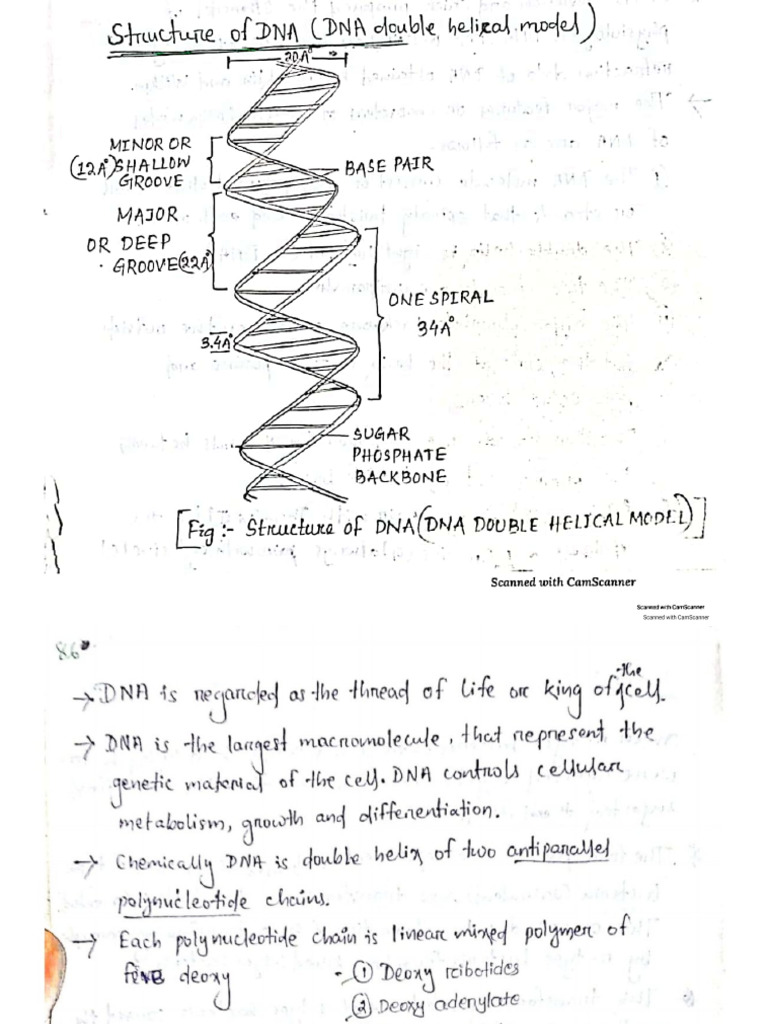 Structure of DNA (DNA double helical model)
20A°
MINOR OR
(12A°) SHALLOW
GROOVE
BASE PAIR
MAJOR
OR DEEP
GROOVE (22A°)
ONE SPIRAL
34A°
3.4A°
SUGAR
PHOSPHATE
BACKBONE
[Fig :- Structure of DNA (DNA DOUBLE HELICAL MODEL)]
Scanned with CamScanner
Scanned with CamScanner
Scanned with CamScanner
86
→ DNA is regarded as the thread of life or king of the cell.
→ DNA is the largest macromolecule, that represent the
genetic material of the cell. DNA controls cellular
metabolism, growth and differentiation.
→ Chemically DNA is double helix of two antiparallel
polynucleotide chains.
→ Each polynucleotide chain is linear mixed polymer of
five deoxy
① Deoxy ribotides
② Deoxy adenylate